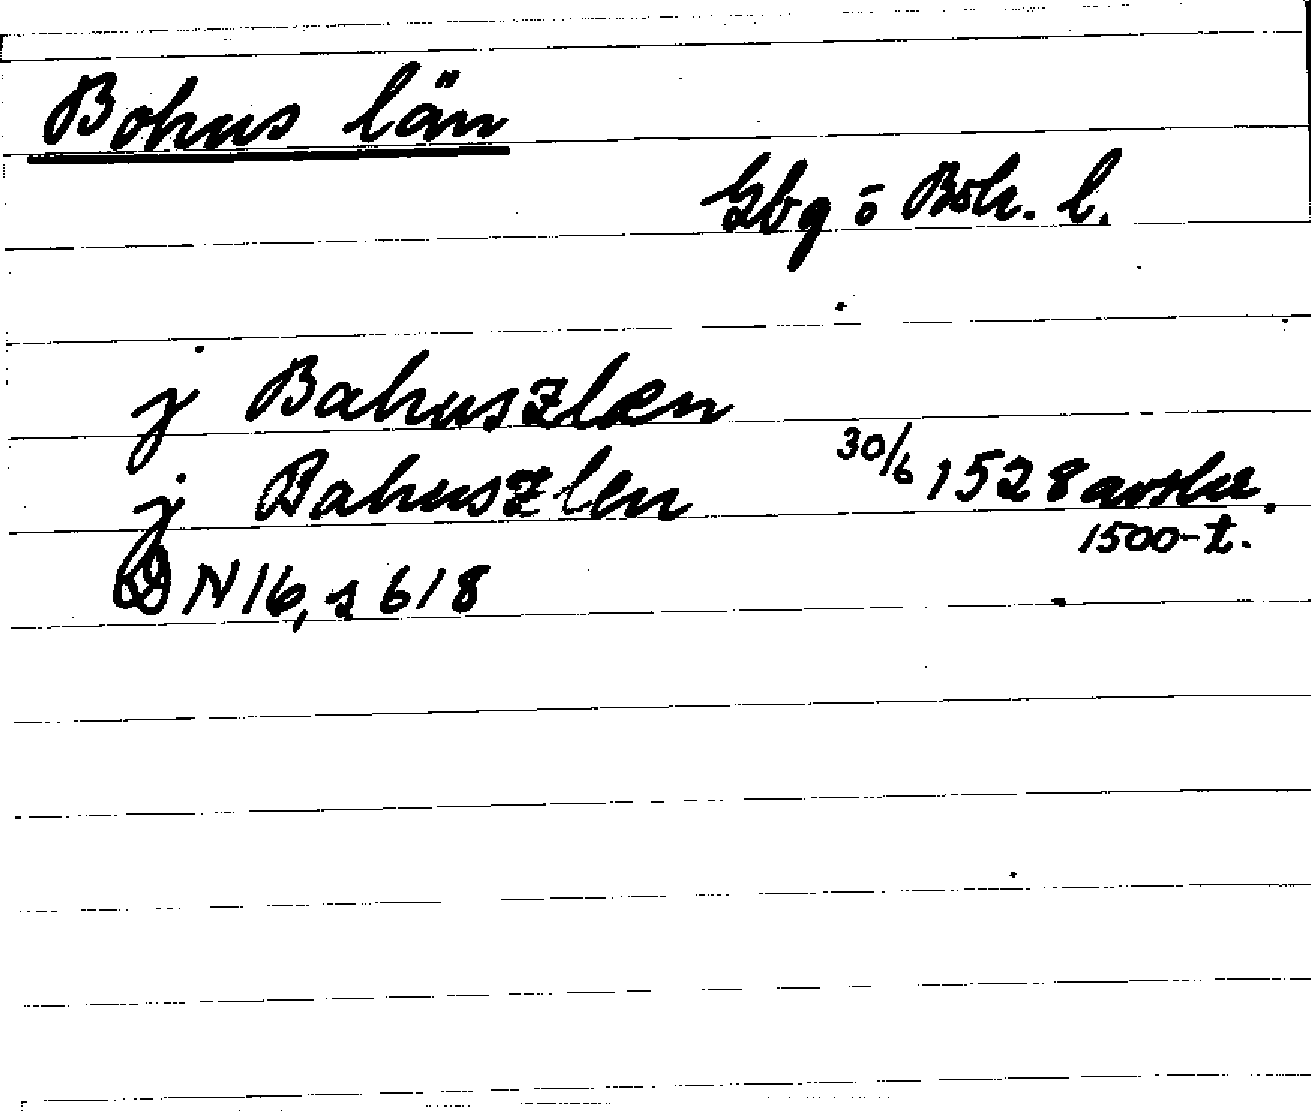 Bohus län
Gbg ō Boh. l.
j Bahuszlæn
j Bahuszlen 30/6 1528 avskr.
1500-t.
DN 16, s 618